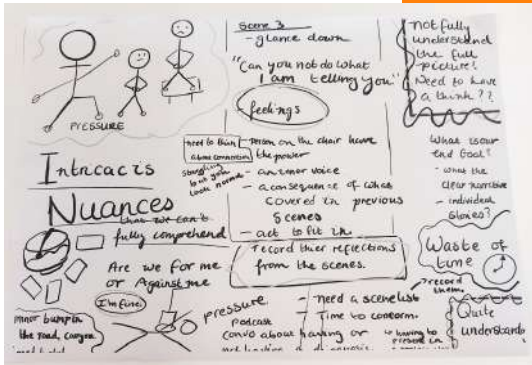 PRESSURE
Intricacis
Nuances
that we can't
fully comprehend
Are we for me
or Against me
I'm fine.
minor bump in
the road,
scene 3
- glance down
"Can you not do what
I am telling you"
- feelings
need to think
about connection
struggling
but you
look normal
- person on the chair have
the power
- an inner voice
- a consequence of whats
covered in previous
scenes
- act to fit in
record thier reflections
from the scenes.
pressure
podcast
convo about having or
- Need a scenelist
- Time to conform.
Not fully
understand
the full
picture!
Need to have
a think??
What is our
end goal?
- what the
clear narrative
- individual
stories?
Waste of
time
record them.
Quite
understands